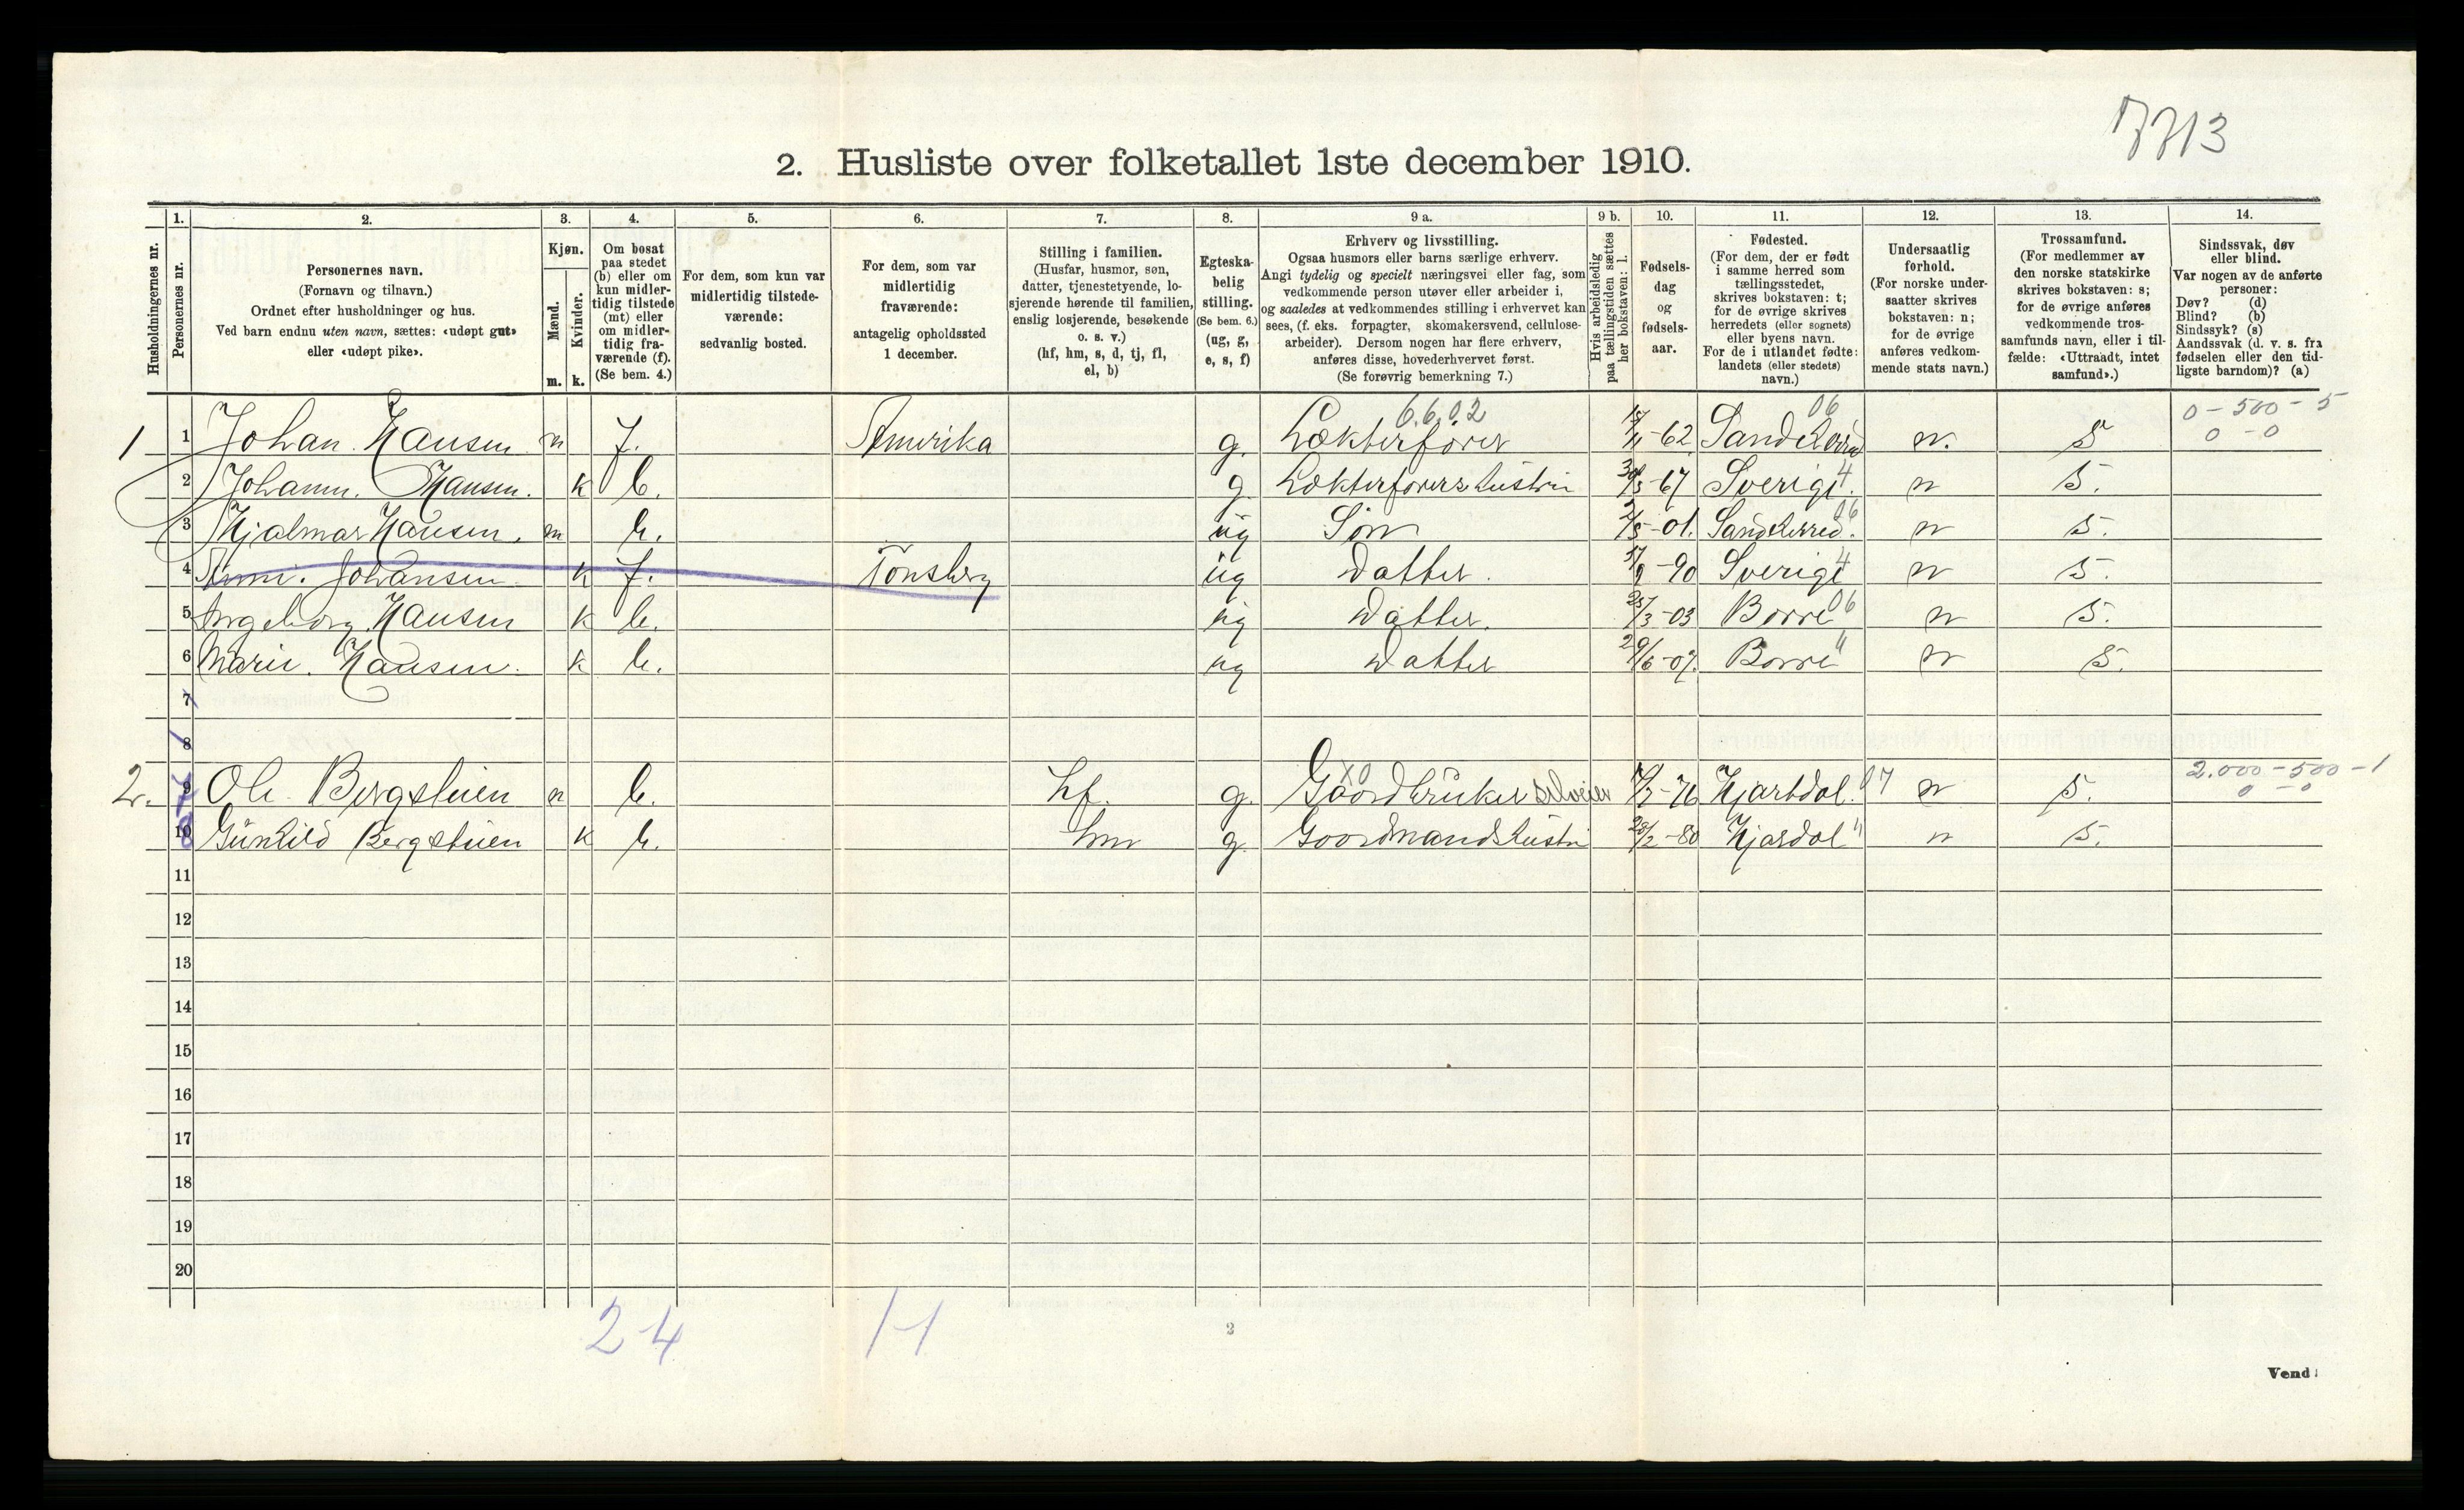 7713
2. Husliste over folketallet 1ste december 1910.
Husholdningernes nr.
1.
Personernes nr.
2.
Personernes navn.
(Fornavn og tilnavn.)
Ordnet efter husholdninger og hus.
Ved barn endnu uten navn, sættes: «udøpt gut»
eller «udøpt pike».
3.
Kjøn.
Mænd.
Kvinder.
m. k.
4.
Om bosat
paa stedet
(b) eller om
kun midler-
tidig tilstede
(mt) eller
om midler-
tidig fra-
værende (f).
(Se bem. 4.)
5.
For dem, som kun var
midlertidig tilstede-
værende:
sedvanlig bosted.
6.
For dem, som var
midlertidig
fraværende:
antagelig opholdssted
1 december.
7.
Stilling i familien.
(Husfar, husmor, søn,
datter, tjenestetyende, lo-
sjerende hørende til familien,
enslig losjerende, besøkende
o. s. v.)
(hf, hm, s, d, tj, fl,
el, b)
8.
Egteska-
belig
stilling.
(Se bem. 6.)
(ug, g,
e, s, f)
9 a.
Erhverv og livsstilling.
Ogsaa husmors eller barns særlige erhverv.
Angi tydelig og specielt næringsvei eller fag, som
vedkommende person utøver eller arbeider i,
og saaledes at vedkommendes stilling i erhvervet kan
sees, (f. eks. forpagter, skomakersvend, cellulose-
arbeider). Dersom nogen har flere erhverv,
anføres disse, hovederhvervet først.
(Se forøvrig bemerkning 7.)
9 b.
Hvis arbeidsledig
paa tællingstiden sættes
her bokstaven: l.
10.
Fødsels-
dag
og
fødsels-
aar.
11.
Fødested.
(For dem, der er født
i samme herred som
tællingsstedet,
skrives bokstaven: t;
for de øvrige skrives
herredets (eller sognets)
eller byens navn.
For de i utlandet fødte:
landets (eller stedets)
navn.)
12.
Undersaatlig
forhold.
(For norske under-
saatter skrives
bokstaven: n;
for de øvrige
anføres vedkom-
mende stats navn.)
13.
Trossamfund.
(For medlemmer av
den norske statskirke
skrives bokstaven: s;
for de øvrige anføres
vedkommende tros-
samfunds navn, eller i til-
fælde: «Uttraadt, intet
samfund».)
14.
Sindssvak, døv
eller blind.
Var nogen av de anførte
personer:
Døv? (d)
Blind? (b)
Sindssyk? (s)
Aandssvak (d. v. s. fra
fødselen eller den tid-
ligste barndom)? (a)
6.6.02 06 0-500-5
1 1 Johan Hansen m f. Amerika g. Lækterfører 11-62 Sandeherred n. S 0-0
2 Hansen. k b. g Lækterførershustru -67 Sverige 4 n S.
3 Hjalmar Hansen. m b. ug Søn 2/5-01. Sandeherred. 06 n S.
4 Johansen k f. Tønsberg ug Datter. -90 Sverige 4 n S.
5 Ingeborg Hansen k b. ug Datter. 25/3-03 Borre 06 n S.
6 Marie. Hansen. k b. ug Datter 29/6-07. Borre " n S.
7
8
2. 9 Ole Bergstuen m b. hf. g. Gaardbruker selveier X0 -76 Hjartdal. 07 n S. 2.000-500-1
0-0
10 Gunhild Bergstuen k b. hm g. Goordmandshustru 28/2-80 Hjardal " n S.
11
12
13
14
15
16
17
18
19
20
2-4 1-1
3
Vend!